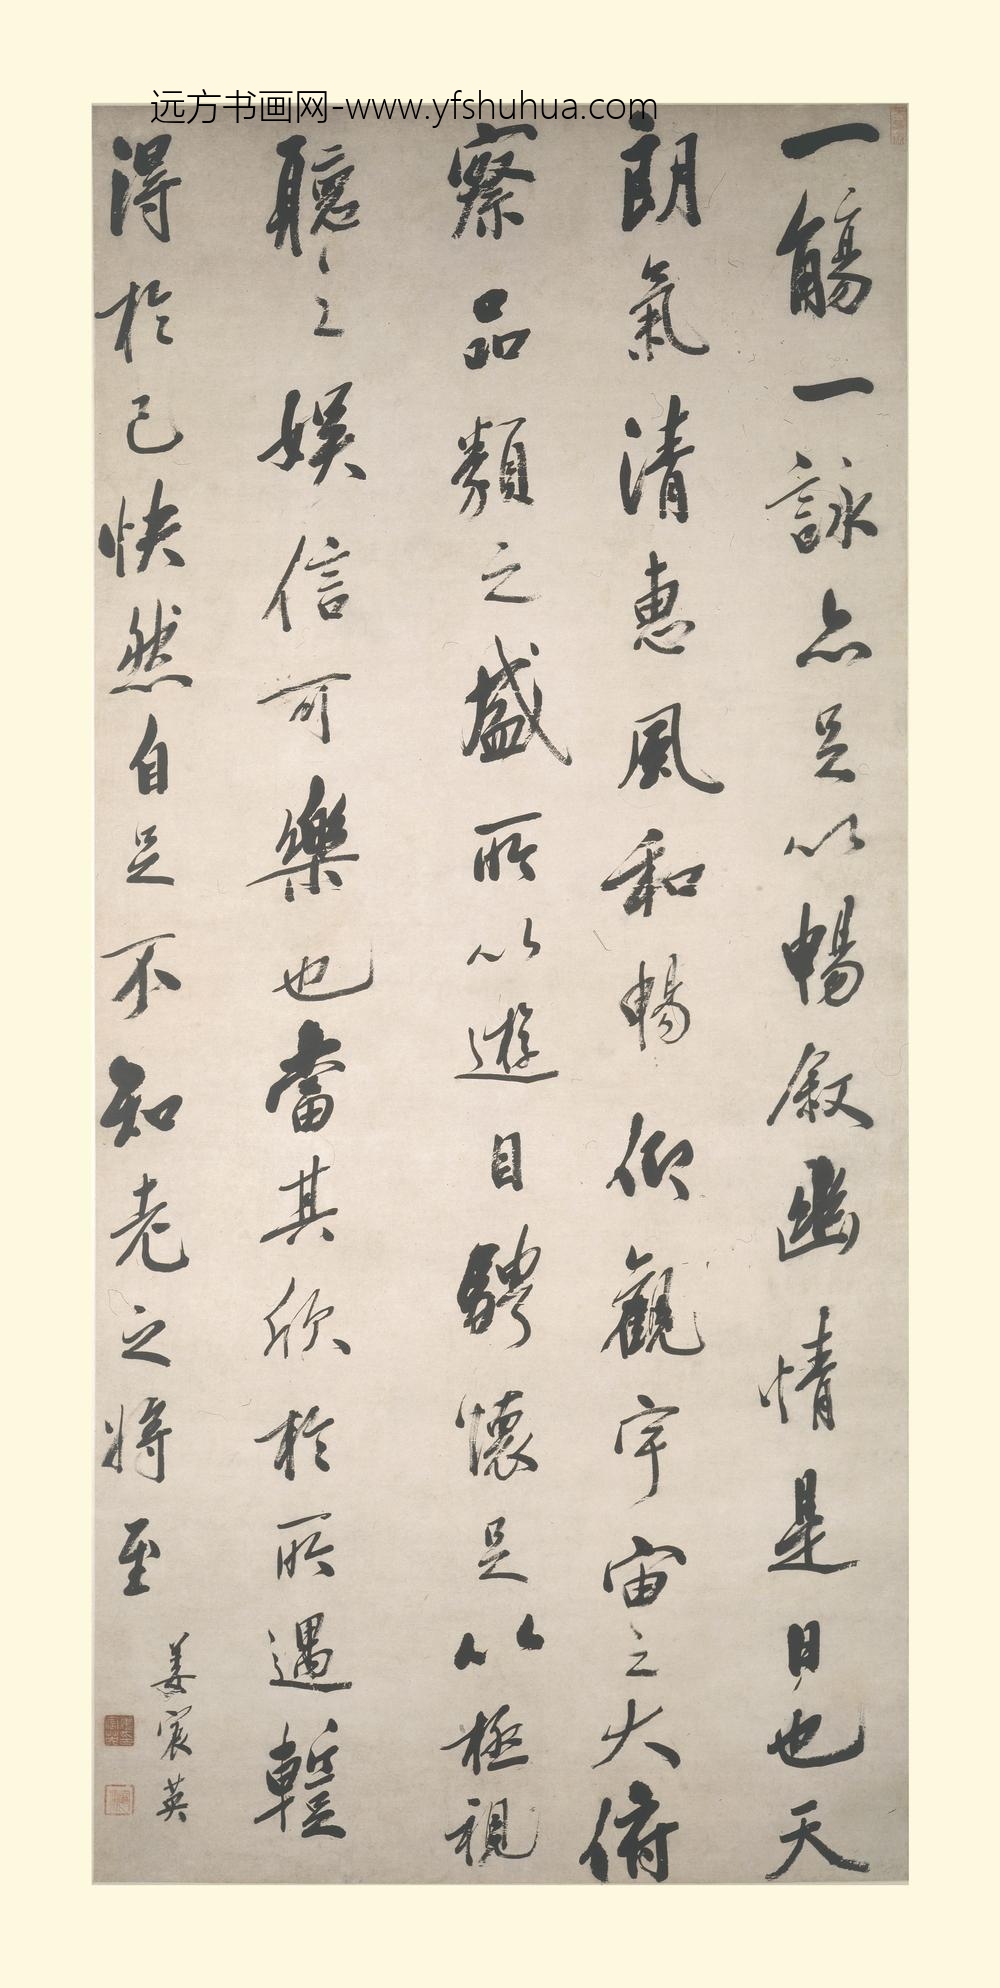 远方书画网-www.yfshuhua.com
一觴一詠亦足以暢叙幽情是日也天
朗氣清惠風和暢仰觀宇宙之大俯
察品類之盛所以遊目騁懷足以極視
聽之娱信可樂也當其欣於所遇蹔
得於己快然自足不知老之將至
姜宸英